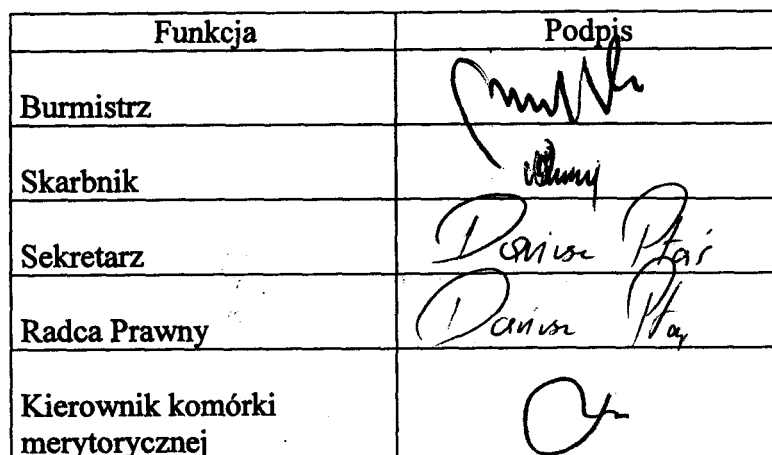 Funkcja Podpis
Burmistrz
Skarbnik
Sekretarz Dariusz Ptaś
Radca Prawny Dariusz
Kierownik komórki
merytorycznej